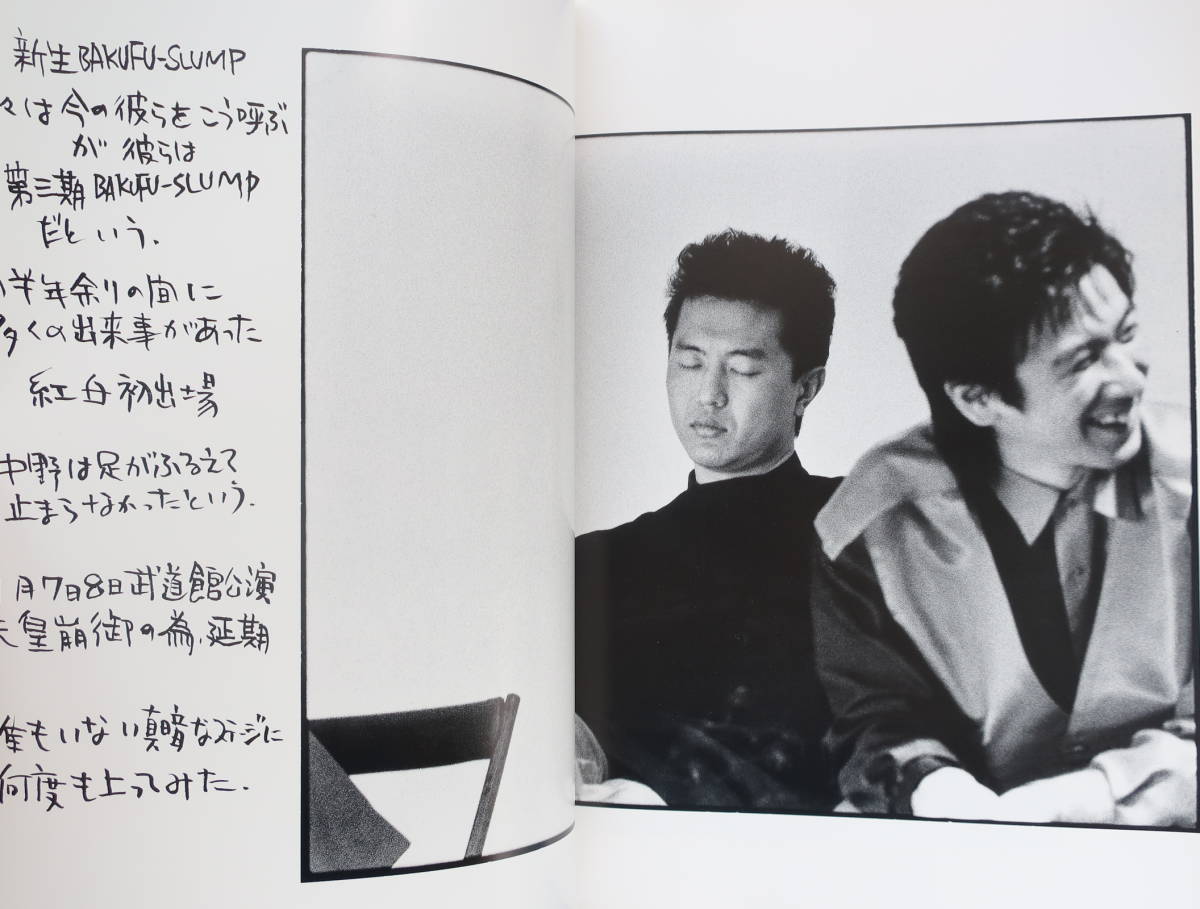 新生BAKUFU-SLUMP
々は今の彼らをこう呼ぶ
が彼らは
第三期BAKUFU-SLUMP
だという.
半年余りの間に
多くの出来事があった
紅白初出場
中野は足がふるえて
止まらなかったという.
月7日8日武道館公演
天皇崩御の為、延期
誰もいない真暗なステージに
何度も上ってみた.